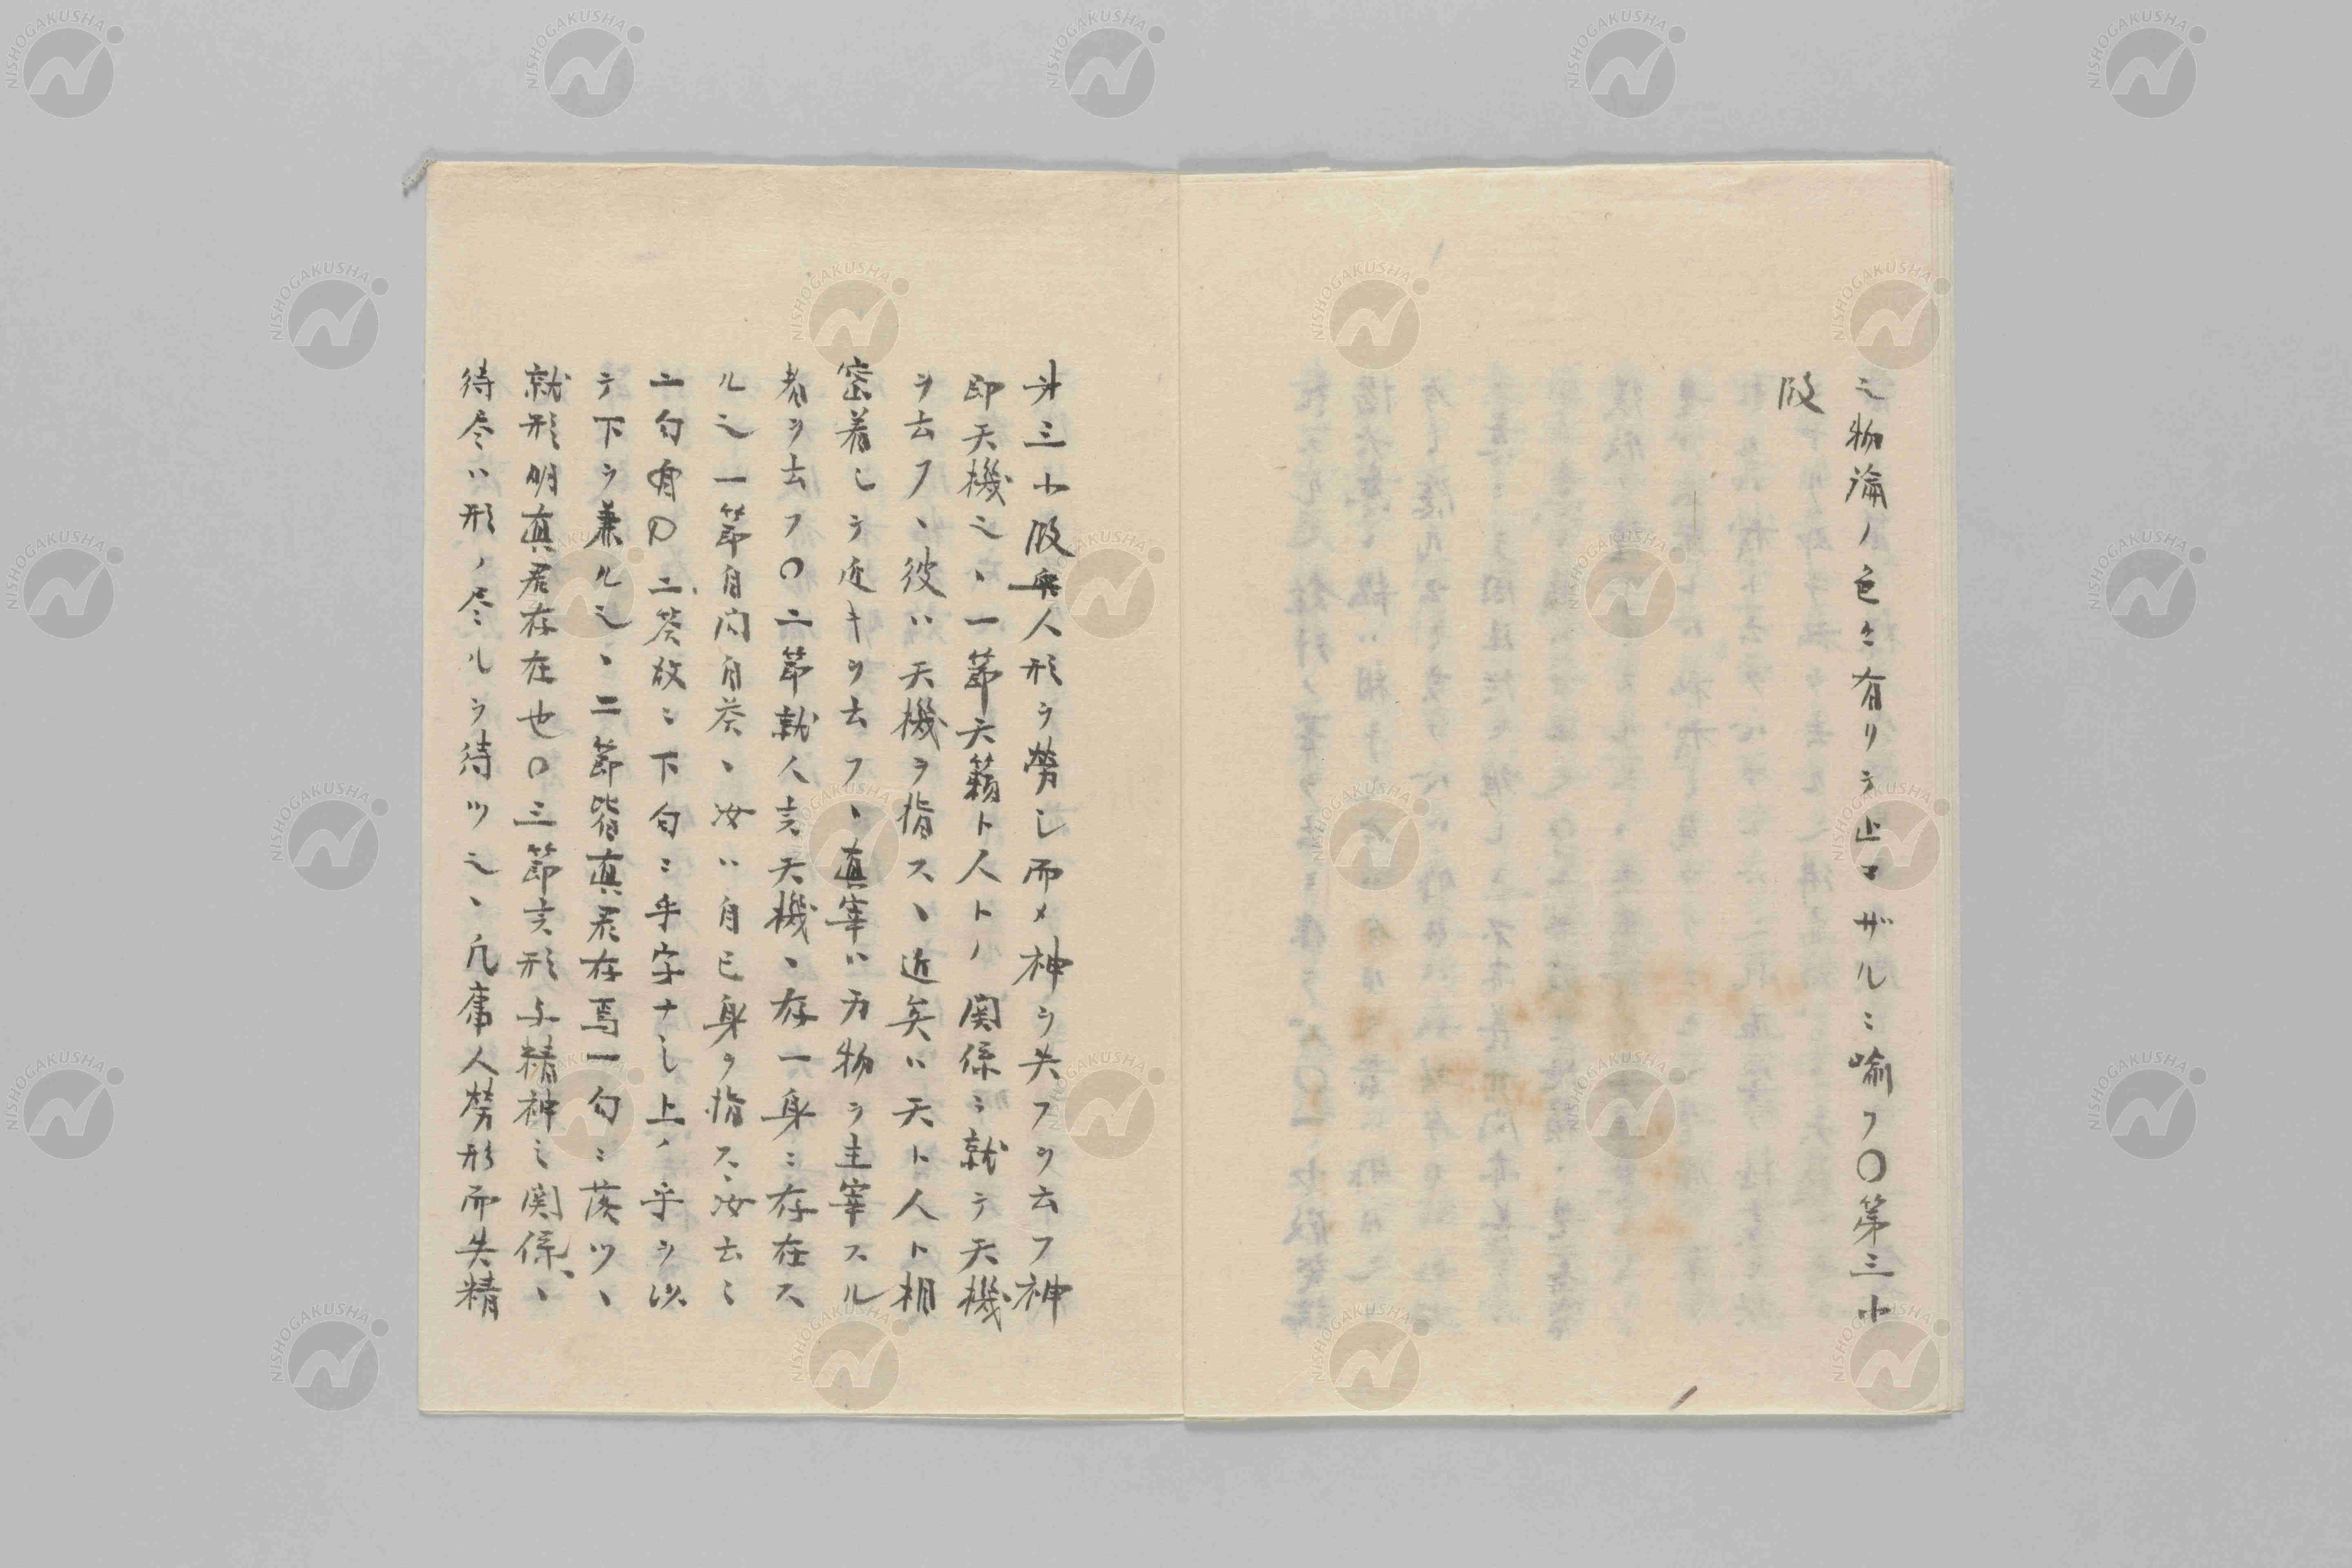 之物論ノ色々有リテ止マザルニ喩フ〇第三小
段
才三小段無人形ヲ勞シ而メ神ヲ失フヲ云フ神
即天機之、一節天籟ト人トノ関係ニ就テ天機
ヲ云フ、彼ハ天機ヲ指ス、近矣ハ天ト人ト相
密着シテ近キヲ云フ、真宰ハ万物ヲ主宰スル
者ヲ云フ〇二節就人言天機、存一身ニ存在ス
ル之一節自問自荅、汝ハ自己身ヲ指ス汝云ミ
二句有口二荅故ニ下句ニ乎字ナシ上ノ乎ヲ以
テ下ヲ兼ル之、二節皆真君存焉一句ニ落ツ、
就形明真君存在也〇三節言形与精神之関係、
待尽ハ形ノ尽ルヲ待ツ之、凡庸人勞形而失精